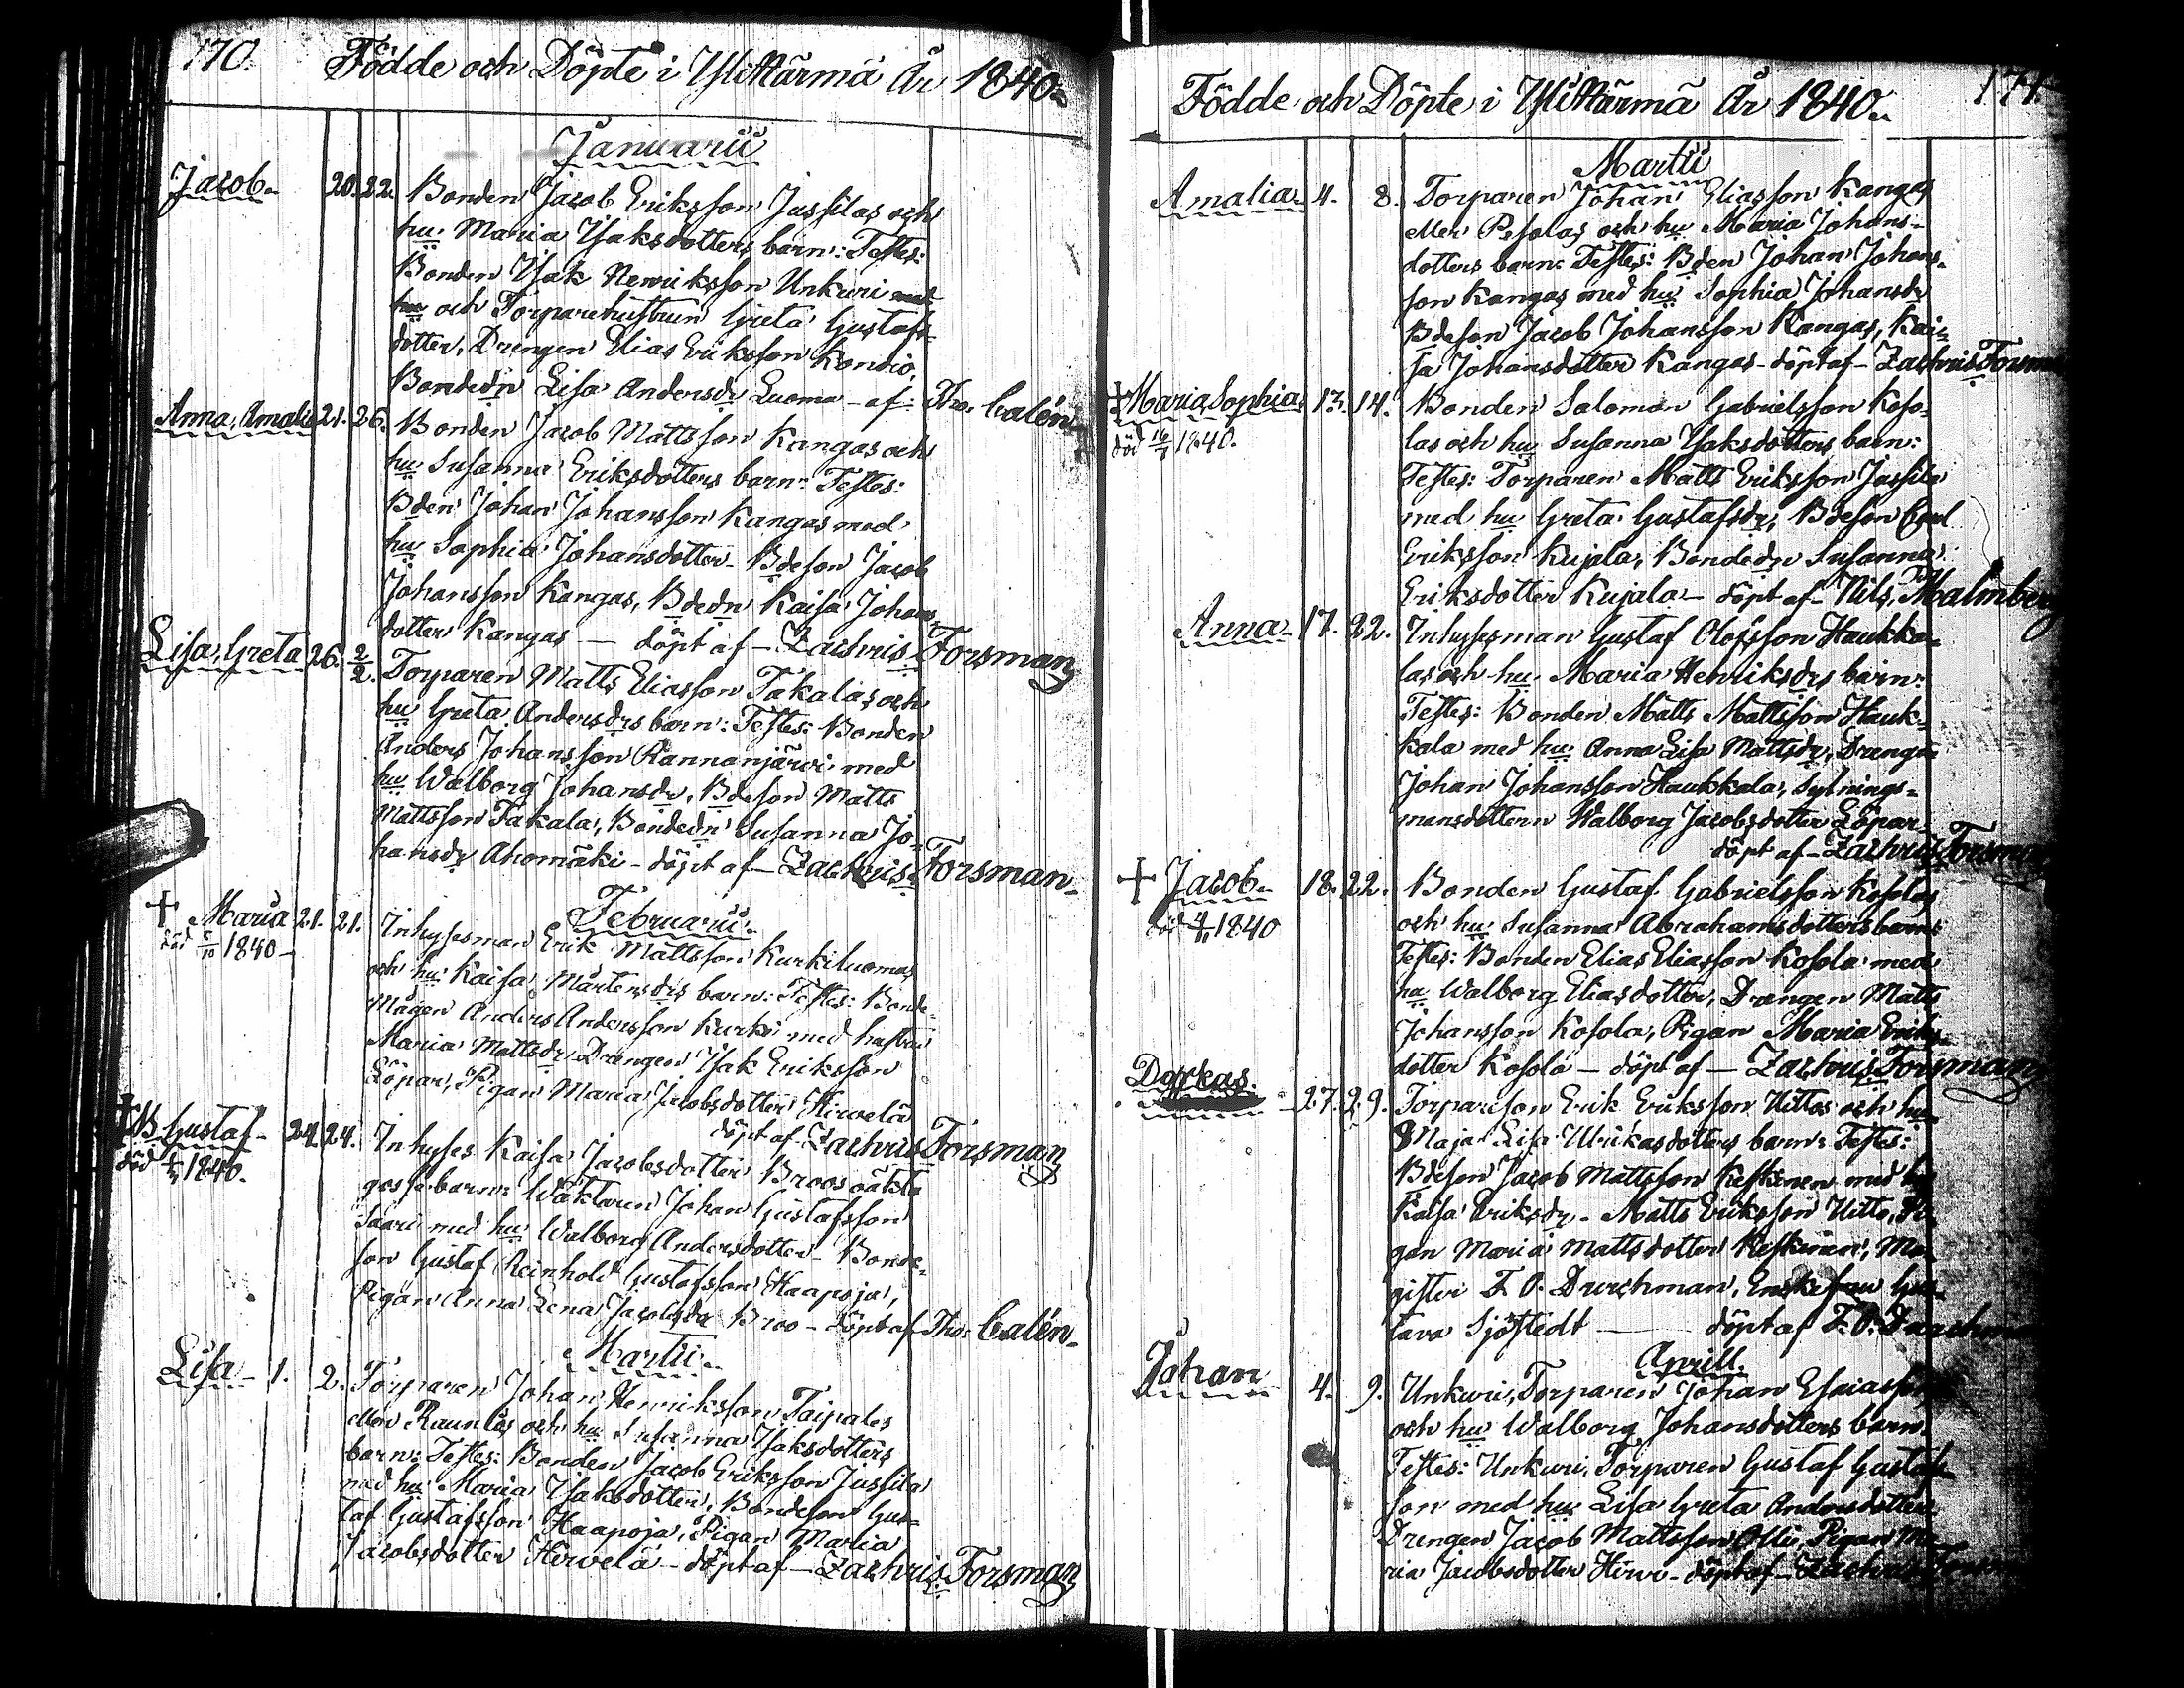 170. Födde och Döpte i Ylikärmä År 1840.
Januarii
Jacob. 20. 22. Bonden Jacob Eriksson Jussilas och
hu: Maria Isaksdotters barn: Testes:
Bonden Isak Henriksson Unkuri med
hu och Torparehustrun Greta Gustafs-
dotter, Drengen Elias Eriksson Kontio,
Bondedn Lisa Andersdr Luoma - af: Tho: Calén
Anna, Amalia 21. 26. Bonden Jacob Mattsson Kangas och
hu Susanna Eriksdotters barn: Testes:
Bden Johan Johansson Kangas med
hu Sophia Johansdotter - Bdeson Jacob
Johansson Kangas, Bdedn Kaisa Johans-
dotter Kangas — döpt af - Zachris Forsman
Lisa, Greta 26. 2/2. Torparen Matts Eliasson Takalas och
hu Greta Andersdrs barn: Testes: Bonden
Anders Johansson Rannanjärwi med
hu Walborg Johansdr, Bdeson Matts
Mattsson Takala, Bondedn Susanna Jo-
hansdr Ahomäki - döpt af - Zachris Forsman.
Februarii.
† Maria 21. 21. Inhysesman Erik Mattsson Kurkiluomas
död 5/10 1840 - och hu: Kaisa Mårtensdrs barn: Testes: Bonde-
mågen Anders Andersson Kurki med hustru
Maria Mattsdr, Drengen Isak Eriksson
Löpar, Pigan Maria Jacobsdotter Hirwelä
döpt af - Zachris Forsman
† B. Gustaf - 24. 24. Inhyses Kaisa Jacobsdotter Broos oäkta
död 1840. gossebarn: Wäktaren Johan Gustafsson
Saari med hu Walborg Andersdotter - Bonde-
son Gustaf Reinhold Gustafsson Haapoja,
Pigan Anna Lena Jacobsdr Broo - döpt af Tho: Calén.
Martii.
Lisa - 1. 2. Torparen Johan Henriksson Taipales
eller Raunios och hu Susanna Isaksdotters
barn: Testes: Bonden Jacob Eriksson Jussila
med hu Maria Isaksdotter, Bondeson Gus-
taf Gustafsson Haapoja, Pigan Maria
Jacobsdotter Hirwelä - döpt af - Zachris Forsman
Födde och Döpte i Ylikärmä År 1840. 171.
Martii
Amalia 4. 8. Torparen Johan Eliasson Kangas
eller Pesolas och hu Maria Johans-
dotters barn: Testes: Bden Johan Johans-
son Kangas med hu Sophia Johansdr
Bdeson Jacob Johansson Kangas, Kai-
sa Johansdotter Kangas - döpt af - Zachris Forsman
† Maria, Sophia 13. 14. Bonden Salomon Gabrielsson Koso-
död 1840. las och hu Susanna Isaksdotters barn:
Testes: Torparen Matts Eriksson Jussila
med hu Greta Gustafsdr, Bdeson
Eriksson Kujala, Bondedr Susanna
Eriksdotter Kujala - döpt af - Nils Malmberg
Anna - 17. 22. Inhysesman Gustaf Olofsson Haukka-
las och hu Maria Henriksdrs barn:
Testes: Bonden Matts Mattsson Hauk-
kala med hu Anna Lisa Mattsdr, Drengen
Johan Johansson Haukkala, Sytnings-
mansdottern Walborg Jacobsdotter Löpar -
döpt af - Zachris Forsman
† Jacob. 18. 22. Bonden Gustaf Gabrielsson Kosolas
död 4/11 1840 och hu: Susanna Abrahamsdotters barn:
Testes: Bonden Elias Eliasson Kosola med
hu Walborg Eliasdotter, Drengen Matts
Johansson Kosola, Pigan Maria Eriks-
dotter Kosola - döpt af - Zachris Forsman
Dorkas. 27. 29. Torpareson Erik Eriksson Uittos och hu
Maja Lisa Ulrikasdotters barn: Testes:
Bdeson Jacob Mattsson Keskinen med hu
Kaisa Eriksdr - Matts Eriksson Uitto, Pi-
gan Maria Mattsdotter Keskinen, Ma-
gister F. O. Durchman, Enkefru Gus-
tava Sjöstedt — döpt af F. O. Durchman
Aprill.
Johan 4. 9. Unkuri, Torparen Johan Esaiasson
och hu Walborg Johansdotters barn.
Testes: Unkuri, Torparen Gustaf Gustafs-
son med hu: Lisa Greta Andersdotter
Drengen Jacob Mattsson Olli, Pigan Ma-
ria Jacobsdotter Hirwe - döpt af - Zachris Forsman